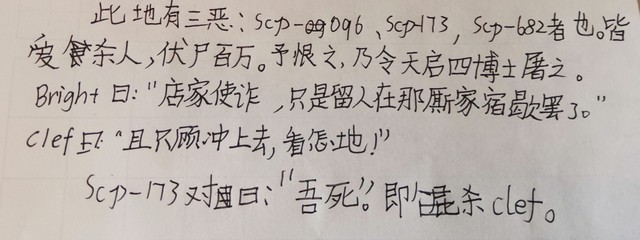 此地有三恶:SCP-096、SCP-173,SCP-682者也。皆
爱杀人,伏尸百万。予恨之,乃令天启四博士屠之。
Bright曰:"店家使诈,只是留人在那厮家宿歇罢了。"
Clef曰:"且只顾冲上去,看怎地!"
SCP-173对曰:"吾死"。即杀clef。